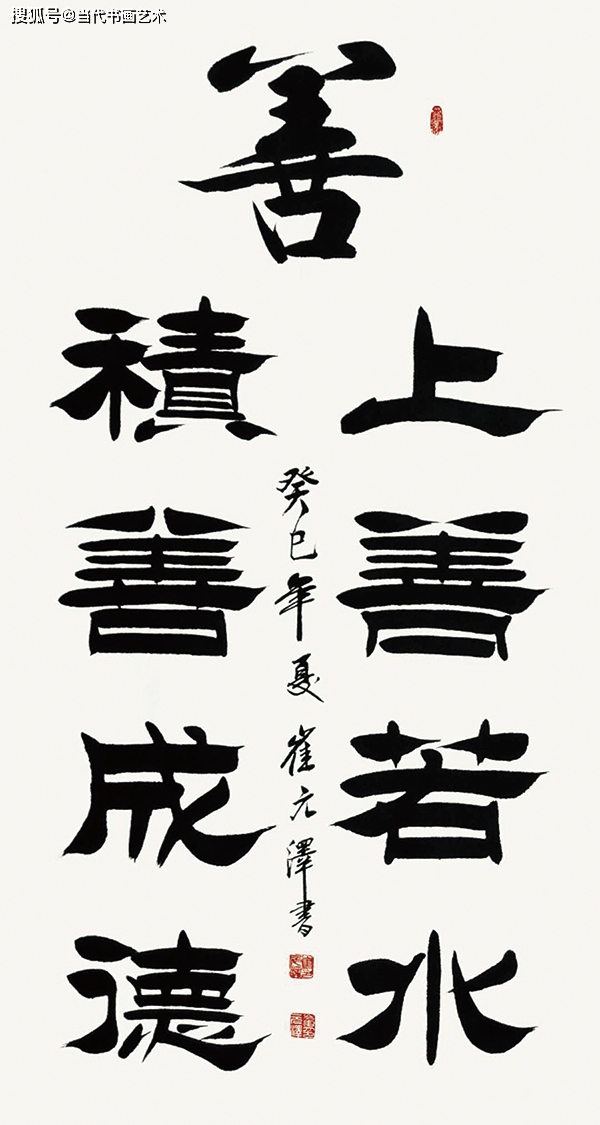 搜狐号@当代书画艺术
善
上善若水
積善成德
癸巳年夏 崔元澤書